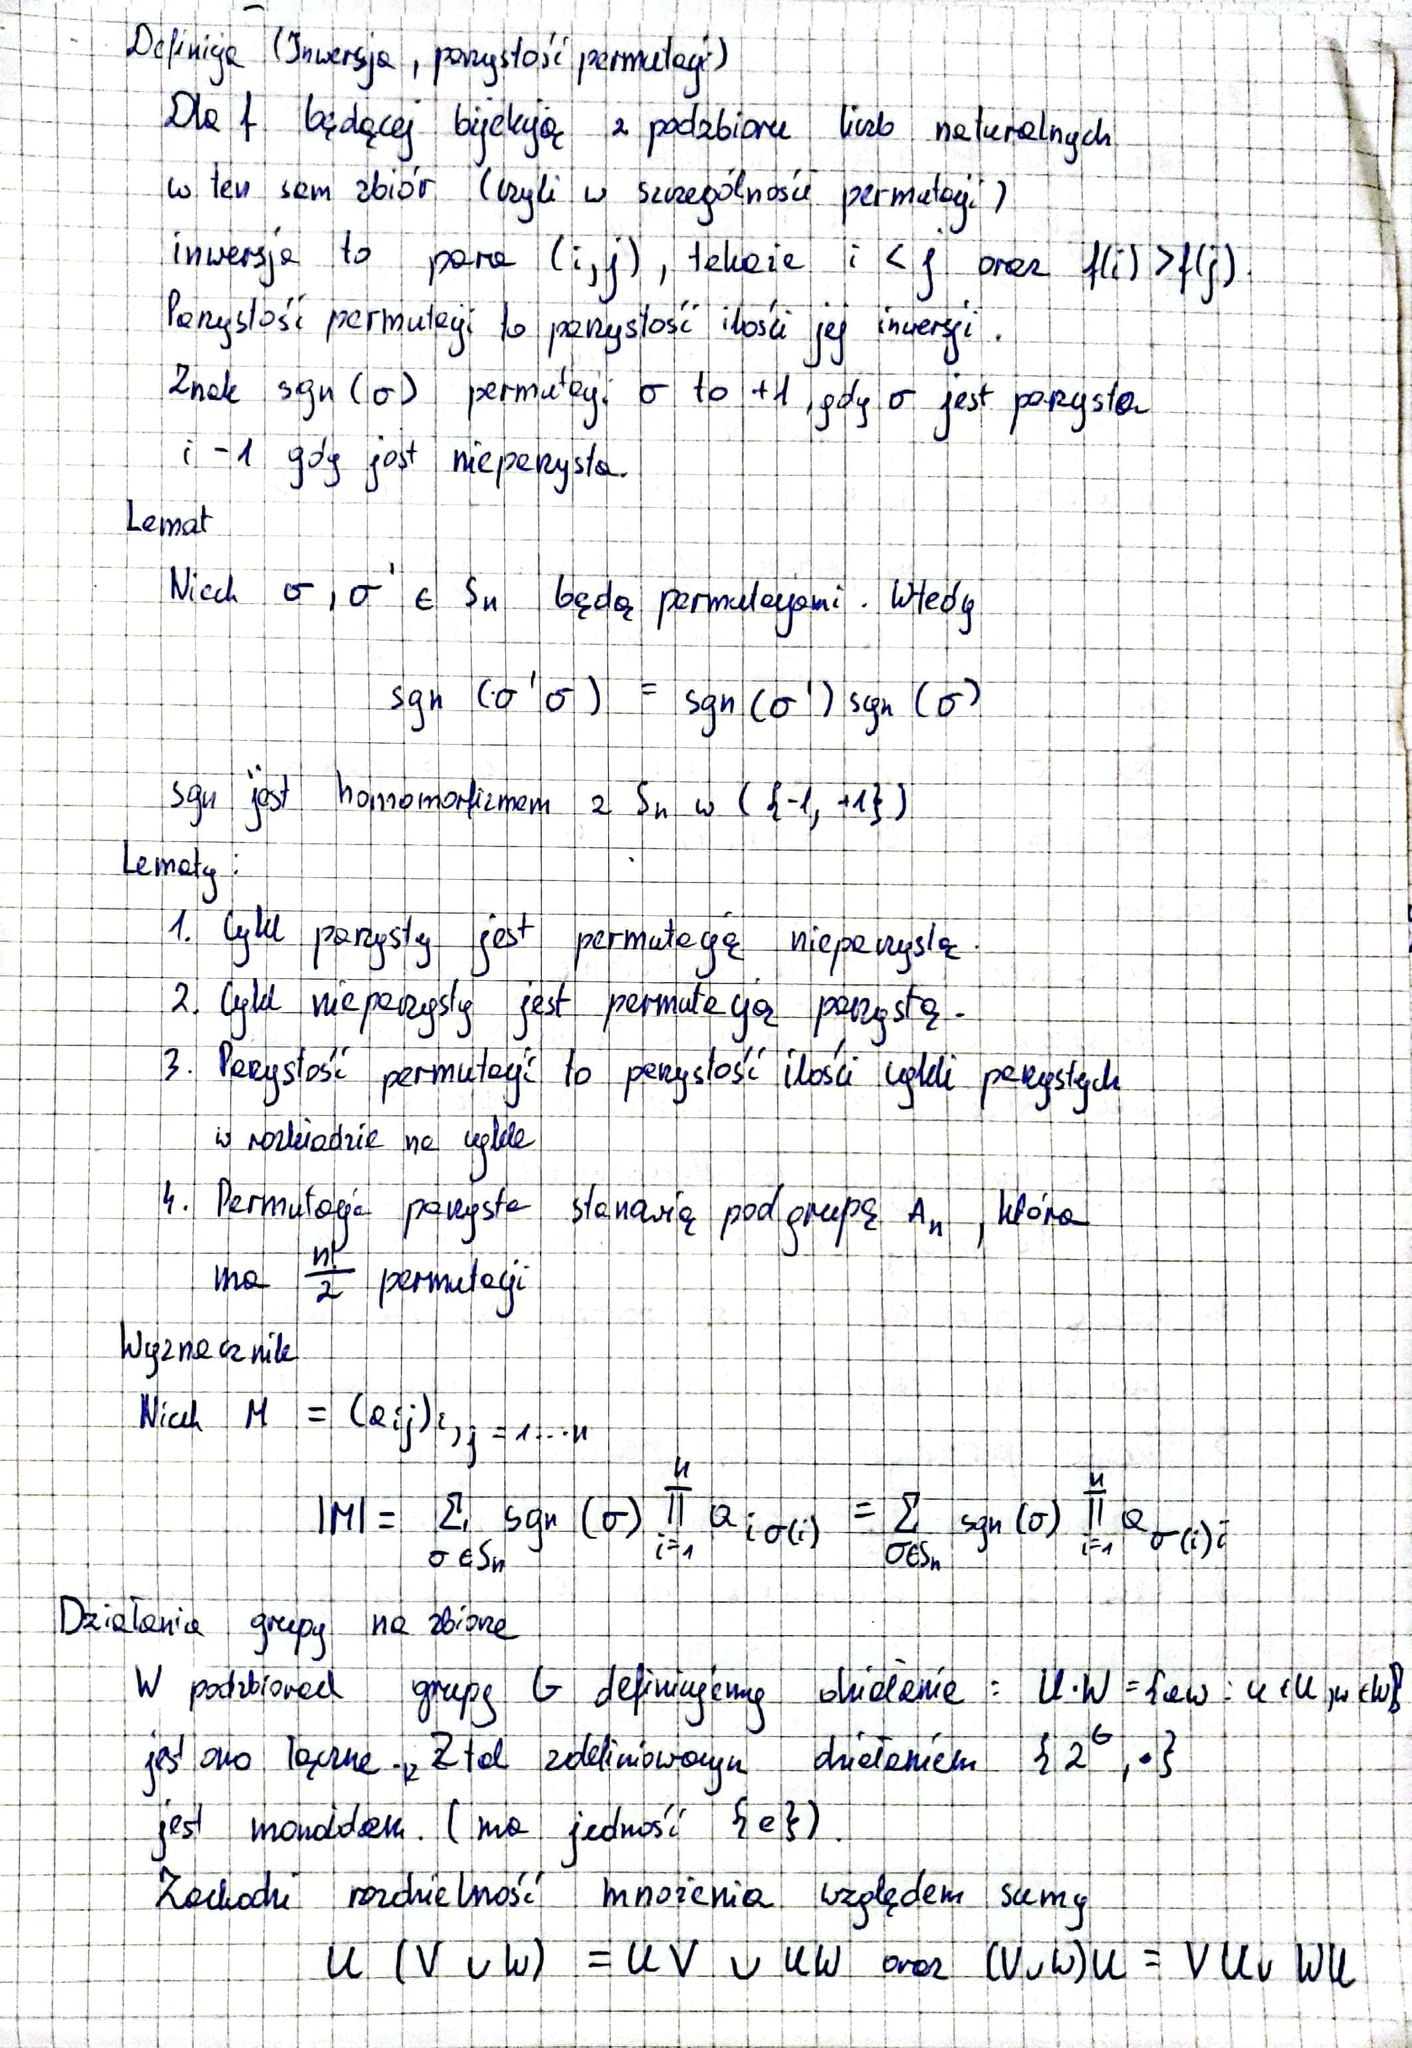 Definicja (Inwersja, parzystość permutacji)
Dla f będącej bijekcją z podzbioru liczb naturalnych
w ten sam zbiór (czyli w szczególności permutacji)
inwersja to para (i,j), takaże i < j oraz f(i) > f(j).
Parzystość permutacji to parzystość ilości jej inwersji.
Znak sgn(σ) permutacji σ to +1, gdy σ jest parzysta
i -1 gdy jest nieparzysta.
Lemat
Niech σ, σ' ∈ Sₙ będą permutacjami. Wtedy
sgn (σ'σ) = sgn(σ') sgn (σ)
sgn jest homomorfizmem z Sₙ w ({-1, +1})
Lematy:
1. Cykl parzysty jest permutacją nieparzystą.
2. Cykl nieparzysty jest permutacją parzystą.
3. Parzystość permutacji to parzystość ilości cykli parzystych
w rozkładzie na cykle
4. Permutacje parzyste stanowią podgrupę Aₙ, która
ma n!/2 permutacji
Wyznacznik
Niech M = (aij)i,j = 1...n
|M| = Σσ∈Sₙ sgn (σ) ∏ⁿi=1 a i σ(i) = Σσ∈Sₙ sgn (σ) ∏ⁿi=1 a σ(i) i
Działania grupy na zbiorze
W podzbiorach grupy G definiujemy działanie: U·W = {uw : u ∈ U, w ∈ W}
jest ono łączne. Z tak zdefiniowanym działaniem {2ᴳ, •}
jest monoidem. (ma jedność {e}).
Zachodzi rozdzielność mnożenia względem sumy
U (V ∪ W) = UV ∪ UW oraz (V∪W)U = VU ∪ WU